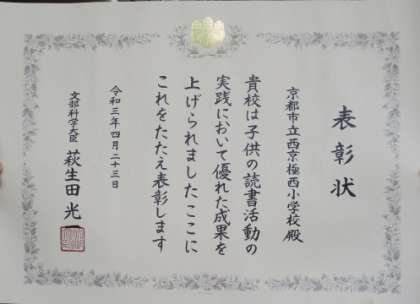 表彰状
京都市立西京極西小学校殿
貴校は子供の読書活動の
実践において優れた成果を
上げられましたここに
これをたたえ表彰します
令和三年四月二十三日
文部科学大臣 萩生田光一